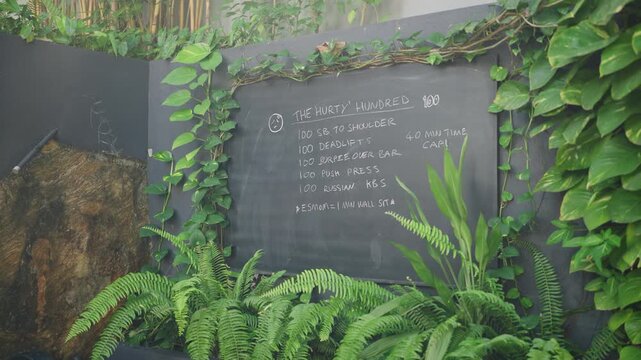 THE HURTY' HUNDRED 100
100 SB TO SHOULDER
100 DEADLIFTS
100 BURPEE OVER BAR
100 PUSH PRESS
100 RUSSIAN KBS
40 MIN TIME
CAP!
*ESMOM = 1 MIN WALL SIT*